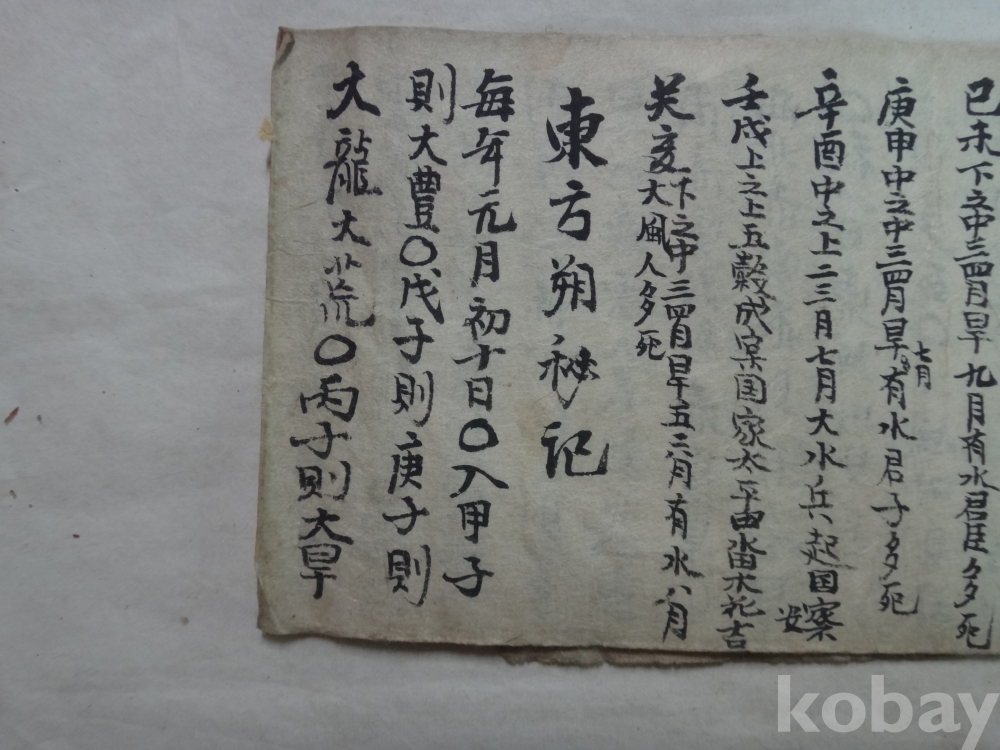 己未下之中三四月旱九月有水君臣多死
庚申中之中三四月旱七月有水君子多死
辛酉中之上二三月七月大水兵起国家安
壬戌上之上五穀成宲国家太平田畓木花吉
癸亥下之中三四月旱五六月有水八月大風人多死
東方朔秘記
每年元月初十日〇入甲子
則大豊〇戊子則庚子則
大龍大荒〇丙子則大旱
kobay